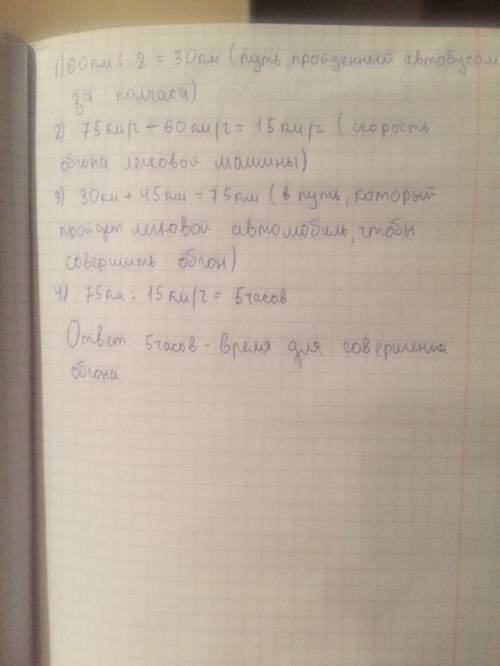 1) 60км : 2 = 30км (путь, пройденный автобусом
за полчаса)
2) 75км/ч - 60км/ч = 15км/ч ( скорость
обгона легковой машины)
3) 30км + 45км = 75км ( в путь, который
пройдет легковой автомобиль, чтобы
совершить обгон)
4) 75км : 15км/ч = 5часов
Ответ 5часов - время для совершения
обгона